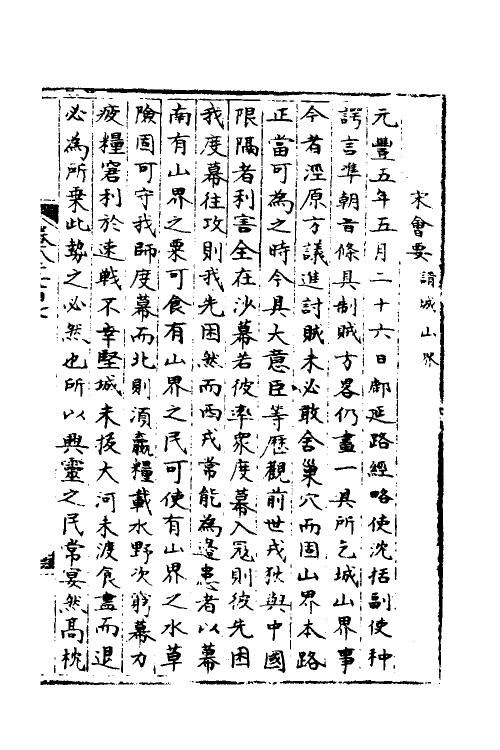 宋會要 請城山界
元豐五年五月二十六日鄜延路經略使沈括副使种
諤言準朝旨條具制賊方畧仍畫一具所乞城山界事
今者涇原方議進討賊未必敢舍巢穴而固山界本路
正當可為之時今具大意臣等歷觀前世戎狄與中國
限隔者利害全在沙幕若彼率衆度幕入寇則彼先困
我度幕往攻則我先困然而西戎常能為邊患者以幕
南有山界之粟可食有山界之民可使有山界之水草
險固可守我師度幕而北則須贏糧載水野次窮幕力
疲糧窘利於速戰不幸堅城未拔大河未渡食盡而退
必為所乗此勢之必然也所以興靈之民常冥然高枕